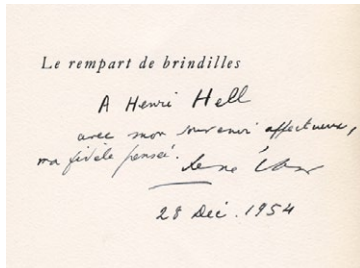 Le rempart de brindilles
A Henri Hell
avec mon souvenir affectueux,
ma fidèle pensée.
René Char
28 Déc. 1954